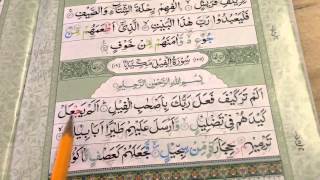 إِۦلَٰفِهِمْ رِحْلَةَ الشِّتَآءِ وَالصَّيْفِ
فَلْيَعْبُدُوا رَبَّ هٰذَا الْبَيْتِ الَّذِىٓ اَطْعَمَهُمْ مِّنْ
جُوْعٍ وَّاٰمَنَهُمْ مِّنْ خَوْفٍ
سُوْرَةُ الْفِيْلِ مَكِّيَّةٌ
بِسْمِ اللهِ الرَّحْمٰنِ الرَّحِيْمِ
اَلَمْ تَرَ كَيْفَ فَعَلَ رَبُّكَ بِاَصْحٰبِ الْفِيْلِ اَلَمْ يَجْعَلْ
كَيْدَهُمْ فِىْ تَضْلِيْلٍ وَّاَرْسَلَ عَلَيْهِمْ طَيْرًا اَبَابِيْلَ
تَرْمِيْهِمْ بِحِجَارَةٍ مِّنْ سِجِّيْلٍ فَجَعَلَهُمْ كَعَصْفٍ مَّاْكُوْلٍ